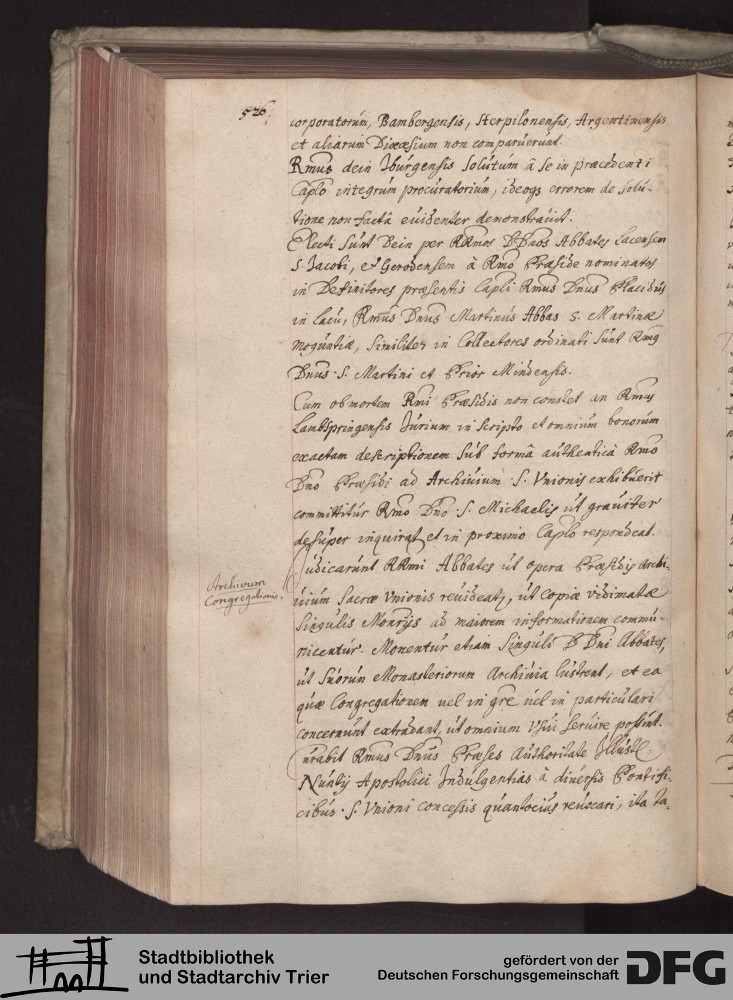 526.
corporatorum, Bambergensis, Herpilonensis, Argentinensis
et aliarum Diœcesium non comparuerunt.
Rmus dein Iburgensis solutum â se in præcedenti
Caplo integrum procuratorium, ideoqs errorem de solu-
tione non factâ euidenter demonstrauit.
Electi sunt Dein per RRmos DDnos Abbates Lacensem
S. Jacobi, et Gerodensem â Rmo Præside nominatos
in Definitores præsentis Capli Rmus Dnus Placidus
in lacu, Rmus Dnus Martinus Abbas S. Martini
Moguntiæ, similiter in Collectores ordinati sunt Rmus
Dnus S. Martini et Prior Mindensis.
Cum ob mortem Rmi Præsidis non constet an Rmus
Lambspringensis Jurium in scripto et omnium bonorum
exactam descriptionem sub formâ authenticâ Rmo
Dno Præsidi ad Archiuium S. Vnionis exhibuerit
committitur Rmo Dno S. Michaelis ut grauiter
desuper inquirat, et in proximo Caplo respondeat.
Judicarunt RRmi Abbates ut opera Præsidis Archi-
uium sacræ Vnionis reuideatr, ut copiæ vidimatæ
singulis Monrijs ad maiorem informationem commu-
nicentur. Monentur etiam singuli DDni Abbates,
ut suorum Monasteriorum Archiuia lustrent, et ea
quæ Congregationem uel in gre uel in particulari
concernunt extradant, ut omnium Vsui seruire possint.
Curabit Rmus Dnus Præses Authoritate Illustr.
Nuntij Apostolici Indulgentias a diuersis Pontifi-
cibus S. Vnioni concessis quantocius reuocari, ita ta-
Archivum
Congregationis.
Stadtbibliothek
und Stadtarchiv Trier
gefördert von der
Deutschen Forschungsgemeinschaft
DFG